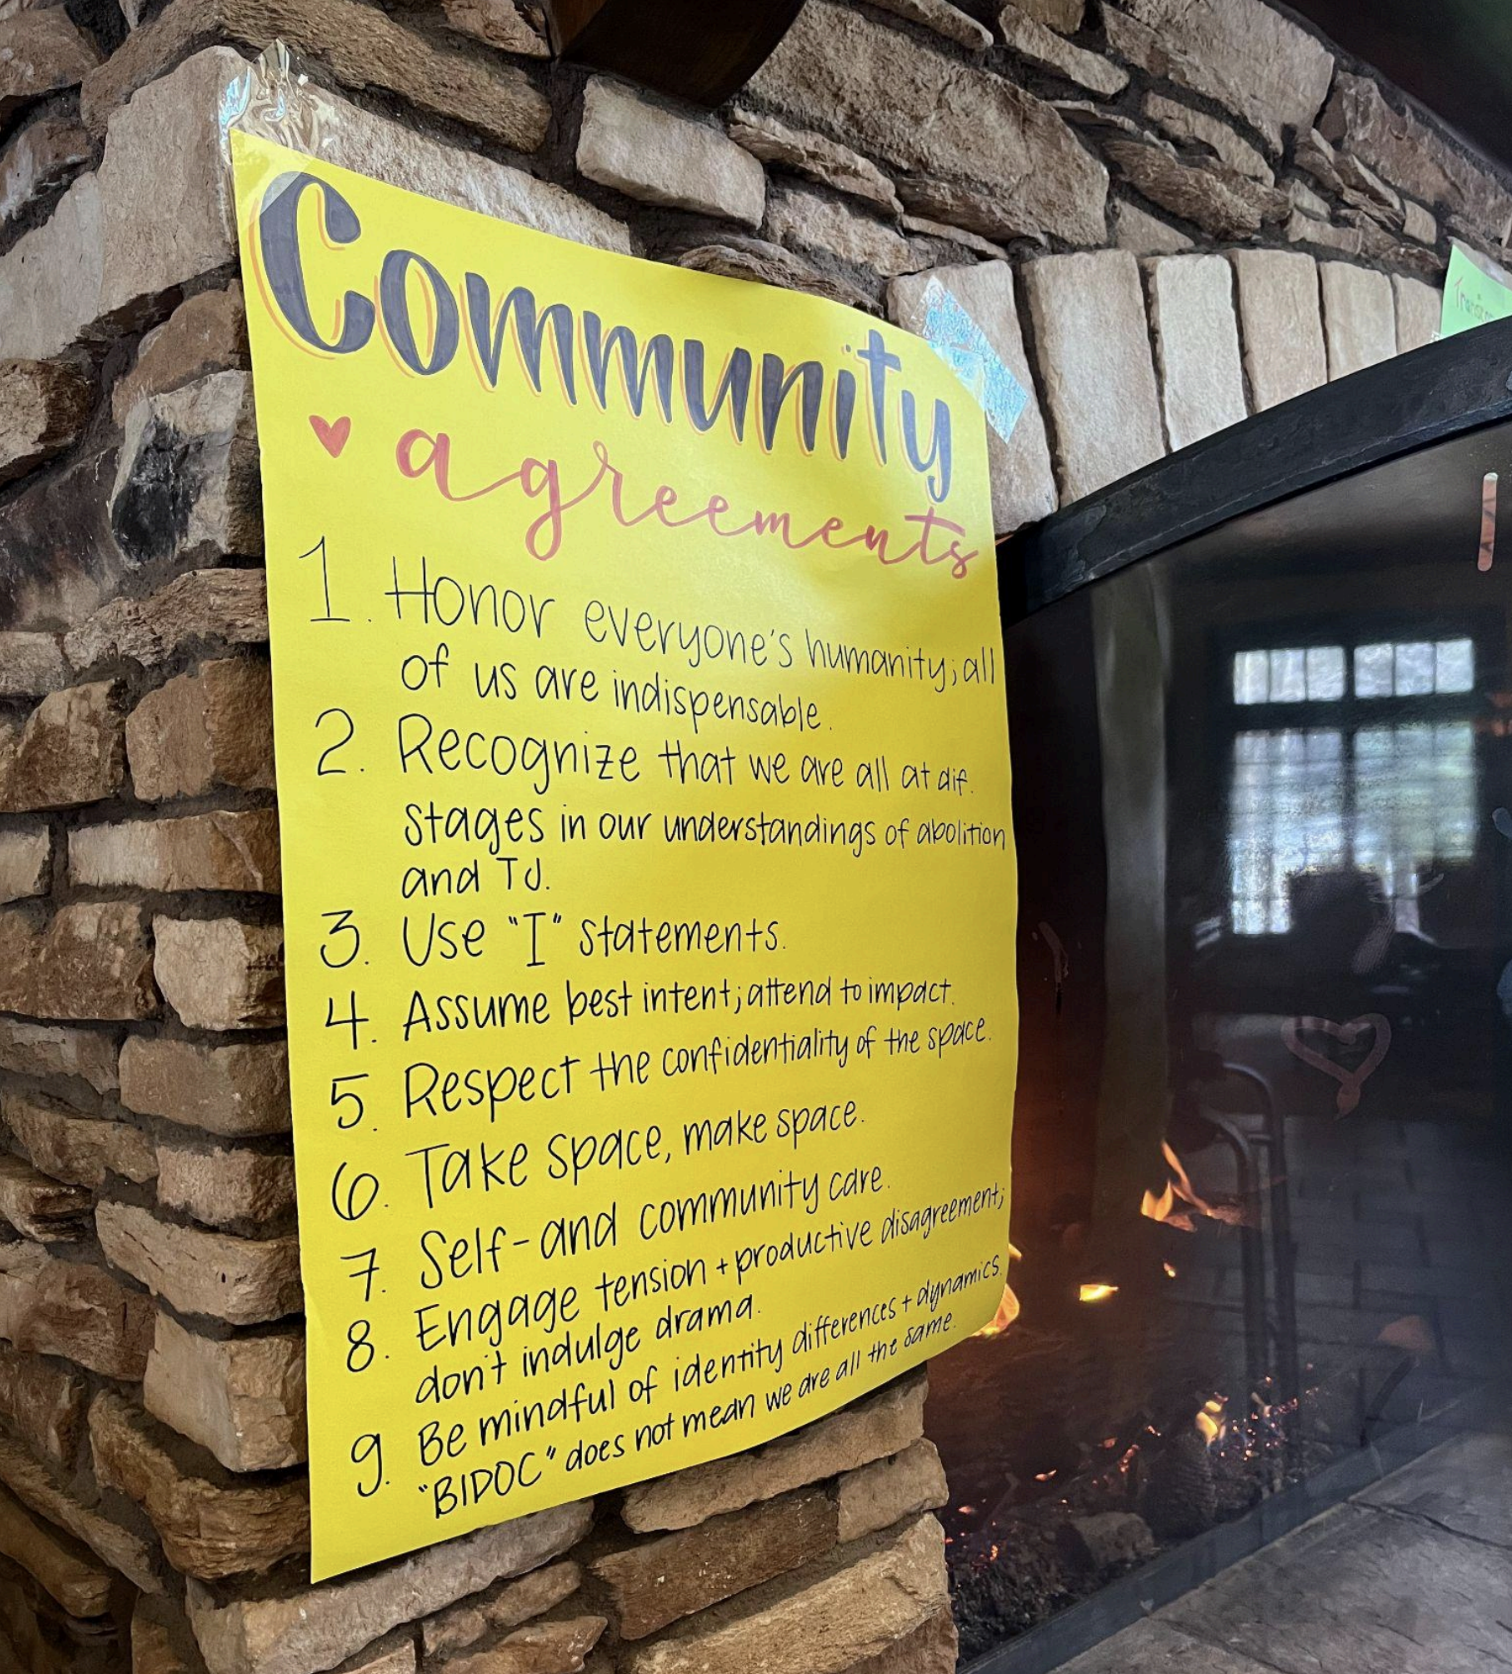 Community
agreements
1. Honor everyone's humanity; all
of us are indispensable.
2. Recognize that we are all at dif.
stages in our understandings of abolition
and TJ.
3. Use "I" statements.
4. Assume best intent; attend to impact.
5. Respect the confidentiality of the space.
6. Take space, make space.
7. Self- and community care.
8. Engage tension + productive disagreement;
don't indulge drama.
9. Be mindful of identity differences + dynamics.
"BIPOC" does not mean we are all the same.